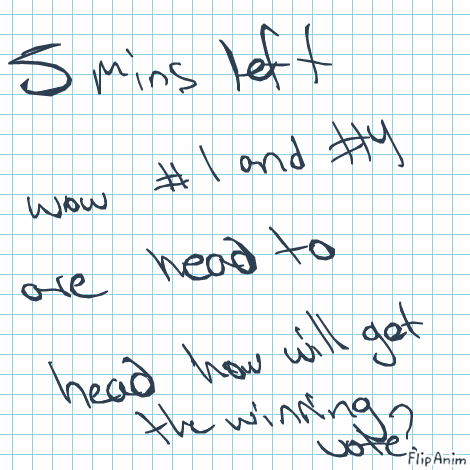 5 mins left
wow #1 and #4
are head to
head how will get
the winning
vote?
FlipAnim